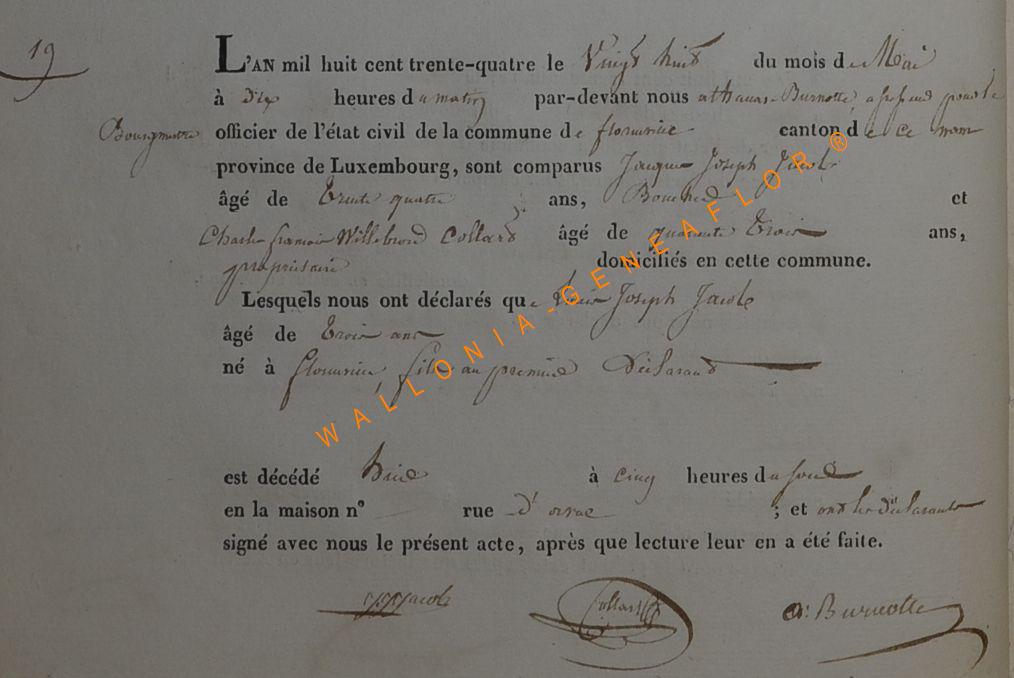 19
L'AN mil huit cent trente-quatre le Vingt huit du mois de Mai
à dix heures du matin par-devant nous athanase Burnotte, assesseur pour le
Bourgmestre officier de l'état civil de la commune de florenville canton de ce nom
province de Luxembourg, sont comparus Jacques Joseph Jacob
âgé de Trente quatre ans, Boucher et
Charles françois Willebrord Collard âgé de quarante Trois ans,
propriétaire domiciliés en cette commune.
Lesquels nous ont déclarés que Joseph Jacob
âgé de Trois ans
né à florenville, fils au premier Déclarant
est décédé hier à cinq heures du soir
en la maison nº rue d' orval ; et ont les déclarants
signé avec nous le présent acte, après que lecture leur en a été faite.
JJ Jacob Collard A: Burnotte
WALLONIA-GENEAFLOR ®